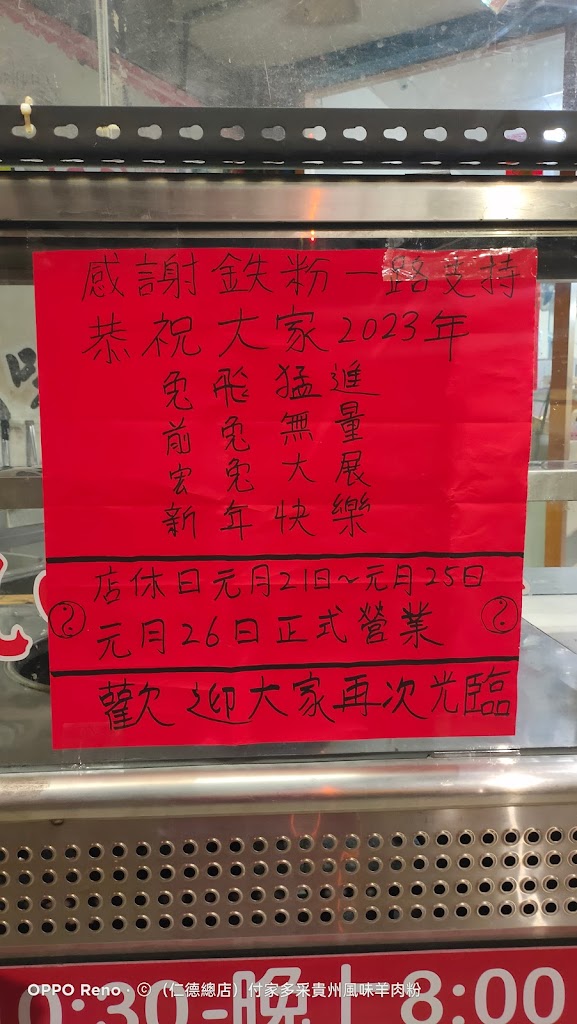 感謝鉄粉一路支持
恭祝大家2023年
兔飛猛進
前兔無量
宏兔大展
新年快樂
店休日元月21日~元月25日
元月26日正式營業
歡迎大家再次光臨
0:30-晚上8:00
OPPO Reno · ©（仁德總店）付家多采貴州風味羊肉粉